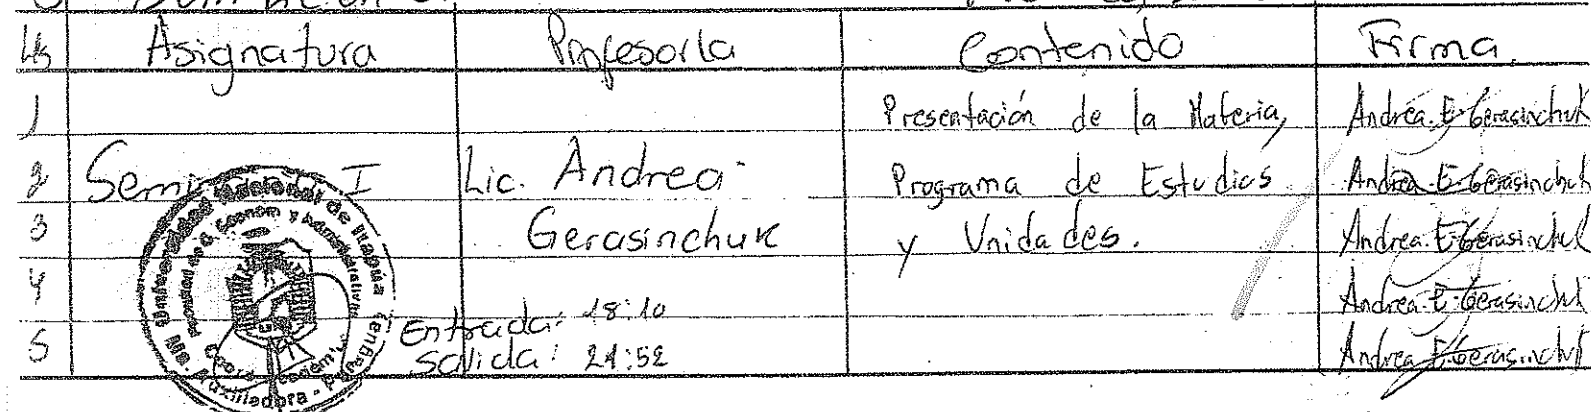 Hs Asignatura Profesor/a Contenido Firma
1 Presentación de la Materia, Andrea E. Gerasinchuk
2 I Lic. Andrea Programa de Estudios Andrea E. Gerasinchuk
3 Gerasinchuk y Unidades. Andrea E. Gerasinchuk
4 Andrea E. Gerasinchuk
Entrada: 18:10
5 Salida: 21:52 Andrea E. Gerasinchuk
Universidad Nacional de Itapúa
Ma. Auxiliadora - Paraguay